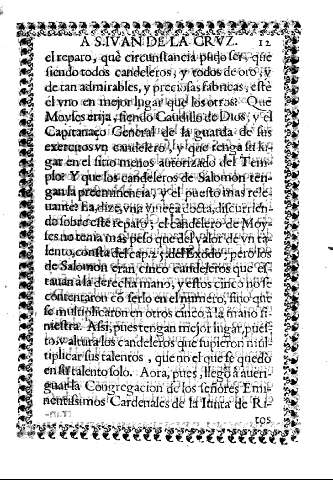 A S. IVAN DE LA CRVZ. 12
el reparo, que circunstancia pudo ser, que
siendo todos candeleros, y todos de oro, y
de tan admirables, y preciosas fabricas, esté
el vno en mejor lugar que los otros? Que
Moyses erija, siendo Caudillo de Dios, y el
Capitanazo General de la guarda de sus
exercitos vn candelero, y que tenga su lu-
gar en el sitio menos autorizado del Tem-
plo? Y que los candeleros de Salomon ten-
gan la preeminencia, y el puesto mas rele-
uante? Ea, dize, vna docta, discurrien-
do sobre este reparo; el candelero de Moy-
ses no tenia mas peso que del valor de vn ta-
lento, consta del cap. 25 del Exodo; pero los
de Salomon eran cinco candeleros que es-
tauan à la derecha mano, y estos cinco no se
contentaron cõ serlo en el numero, sino que
se multiplicaron en otros cinco à la mano si-
niestra. Assi, pues tengan mejor lugar, pues-
to, y altura los candeleros que supieron mul-
tiplicar sus talentos, que no el que se quedò
en su talento solo. Aora, pues, llegò à aueri-
guar la Congregacion de los señores Emi-
nentissimos Cardenales de la Iunta de Ri-
tos